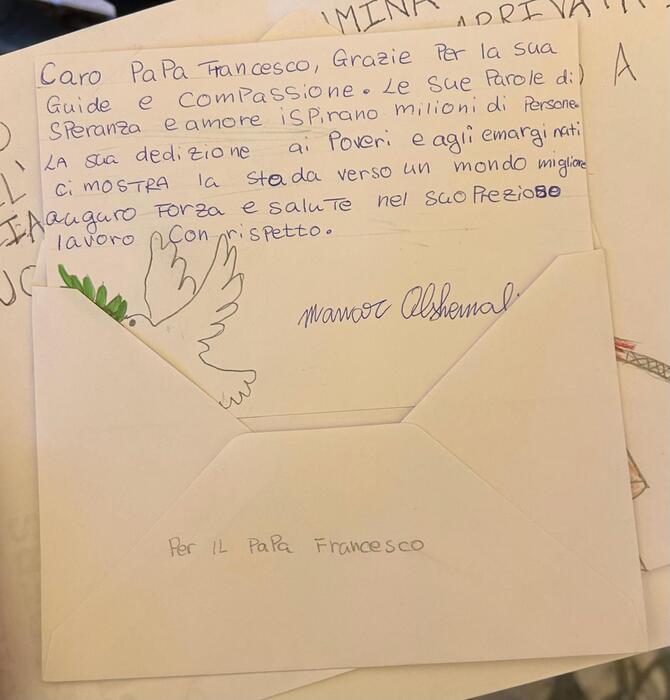 IMINA
ARRIVATI
A
Caro PaPa Francesco, Grazie Per la sua
Guide e compassione. Le Sue Parole di)
SPeranza e amore ispirano milioni di Persone.
LA sua dedizione ai Poveri e agli emarginati
ci MOSTRA la stada verso un mondo migliore
auguro Forza e saluTe nel suo Prezioso
lavoro Con rispetto.
Per IL PaPa Francesco